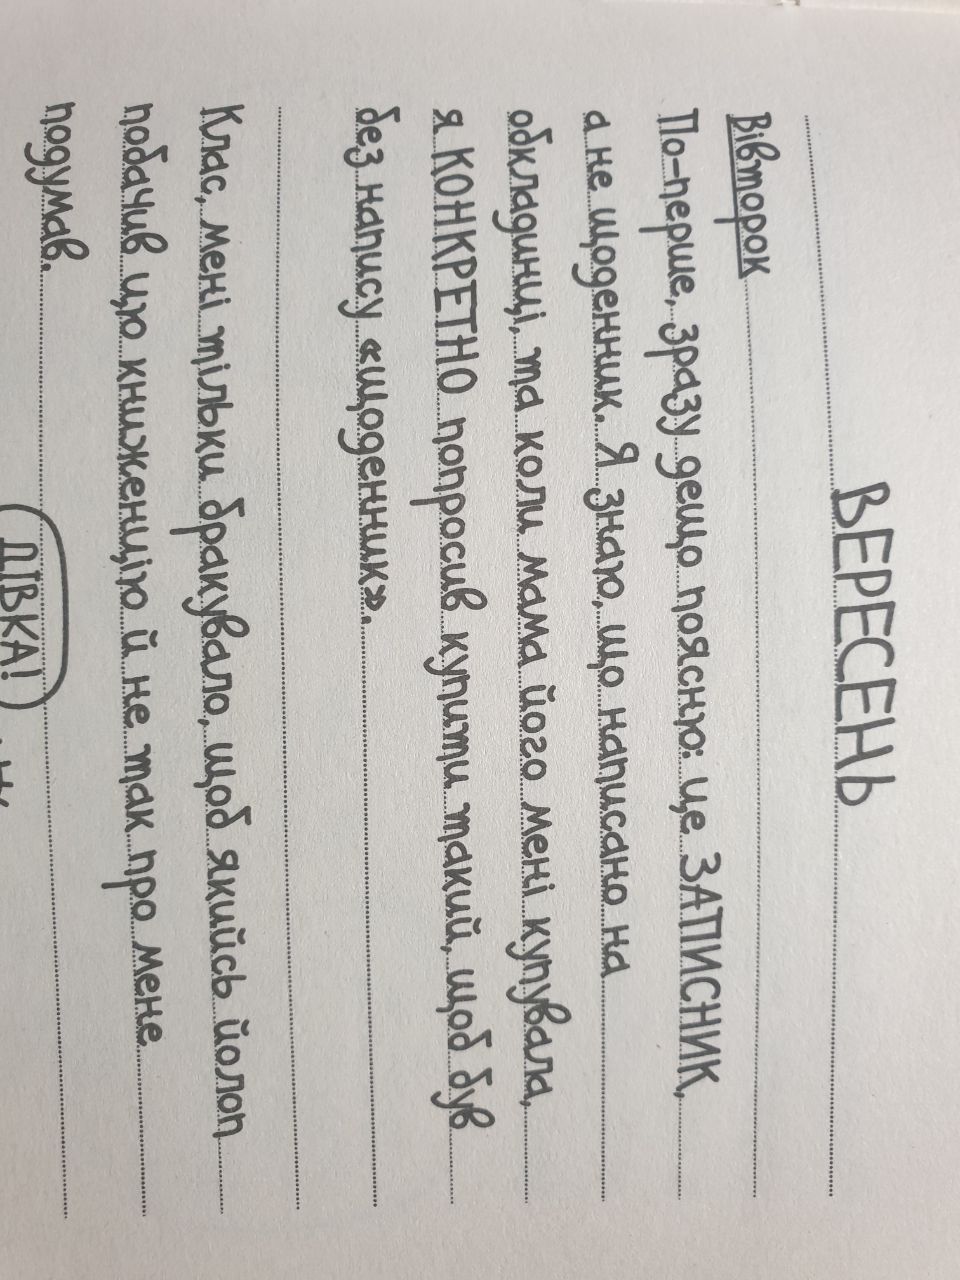 ВЕРЕСЕНЬ
Вівторок
По-перше, зразу дещо поясню: це ЗАПИСНИК,
а не щоденник. Я знаю, що написано на
обкладинці, та коли мама його мені купувала,
я КОНКРЕТНО попросив купити такий, щоб був
без напису «щоденник».
Клас, мені тільки бракувало, щоб якийсь йолоп
побачив цю книженцію й не так про мене
подумав.
ДІВКА!